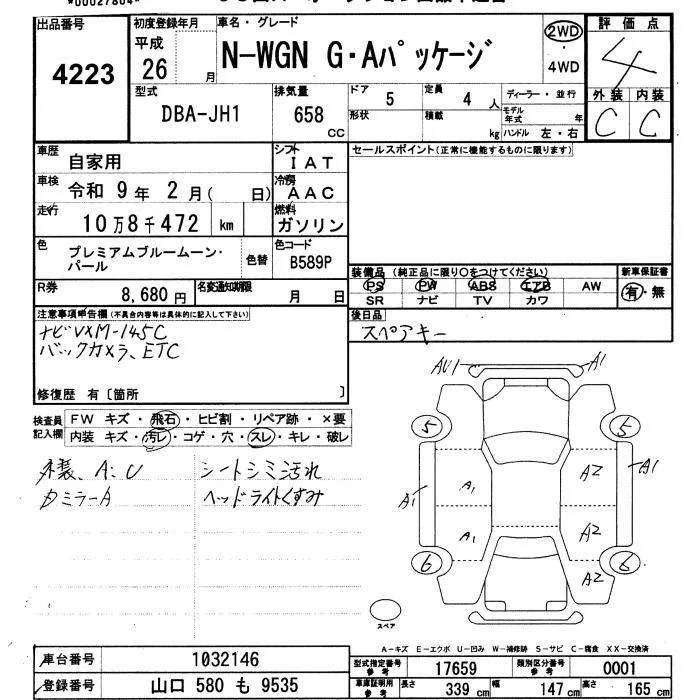 出品番号
4223
初度登録年月
平成
26 月
車名・グレード
N-WGN G・Aパッケージ
2WD
4WD
評価点
4
外装 内装
C C
型式
DBA-JH1
排気量
658 CC
ドア 5
定員 4 人
ディーラー・並行
形状
積載 kg
モデル年式 年
ハンドル 左・右
車歴
自家用
シフト
IAT
車検
令和 9年 2月( 日)
冷房
AAC
走行
10万8千472 km
燃料
ガソリン
色
プレミアムブルームーン・
パール
色替
色コード
B589P
R券
8,680円
名変通知期限
月 日
セールスポイント(正常に機能するものに限ります)
装備品 (純正品に限り○をつけてください)
新車保証書
PS PW ABS エアB AW
SR ナビ TV カワ
有・無
後日品
スペアキー
注意事項申告欄(不具合内容等は具体的に記入して下さい)
ナビVXM-145C
バックカメラ、ETC
修復歴 有〔箇所 〕
検査員
記入欄
FW キズ・飛石・ヒビ割・リペア跡・×要
内装 キズ・汚レ・コゲ・穴・スレ・キレ・破レ
外装、A、U
シートシミ汚れ
カミラーA
ヘッドライトくすみ
AU1
A1
5
5
A1
A1
A1
A1
A2
A2
A2
6
6
スペア
A-キズ E-エクボ U-凹み W-補修跡 S-サビ C-腐食 XX-交換済
車台番号
1032146
登録番号
山口 580 も 9535
型式指定番号
参考
17659
類別区分番号
参考
0001
車庫証明用
参考
長さ
339 cm
幅
147 cm
高さ
165 cm